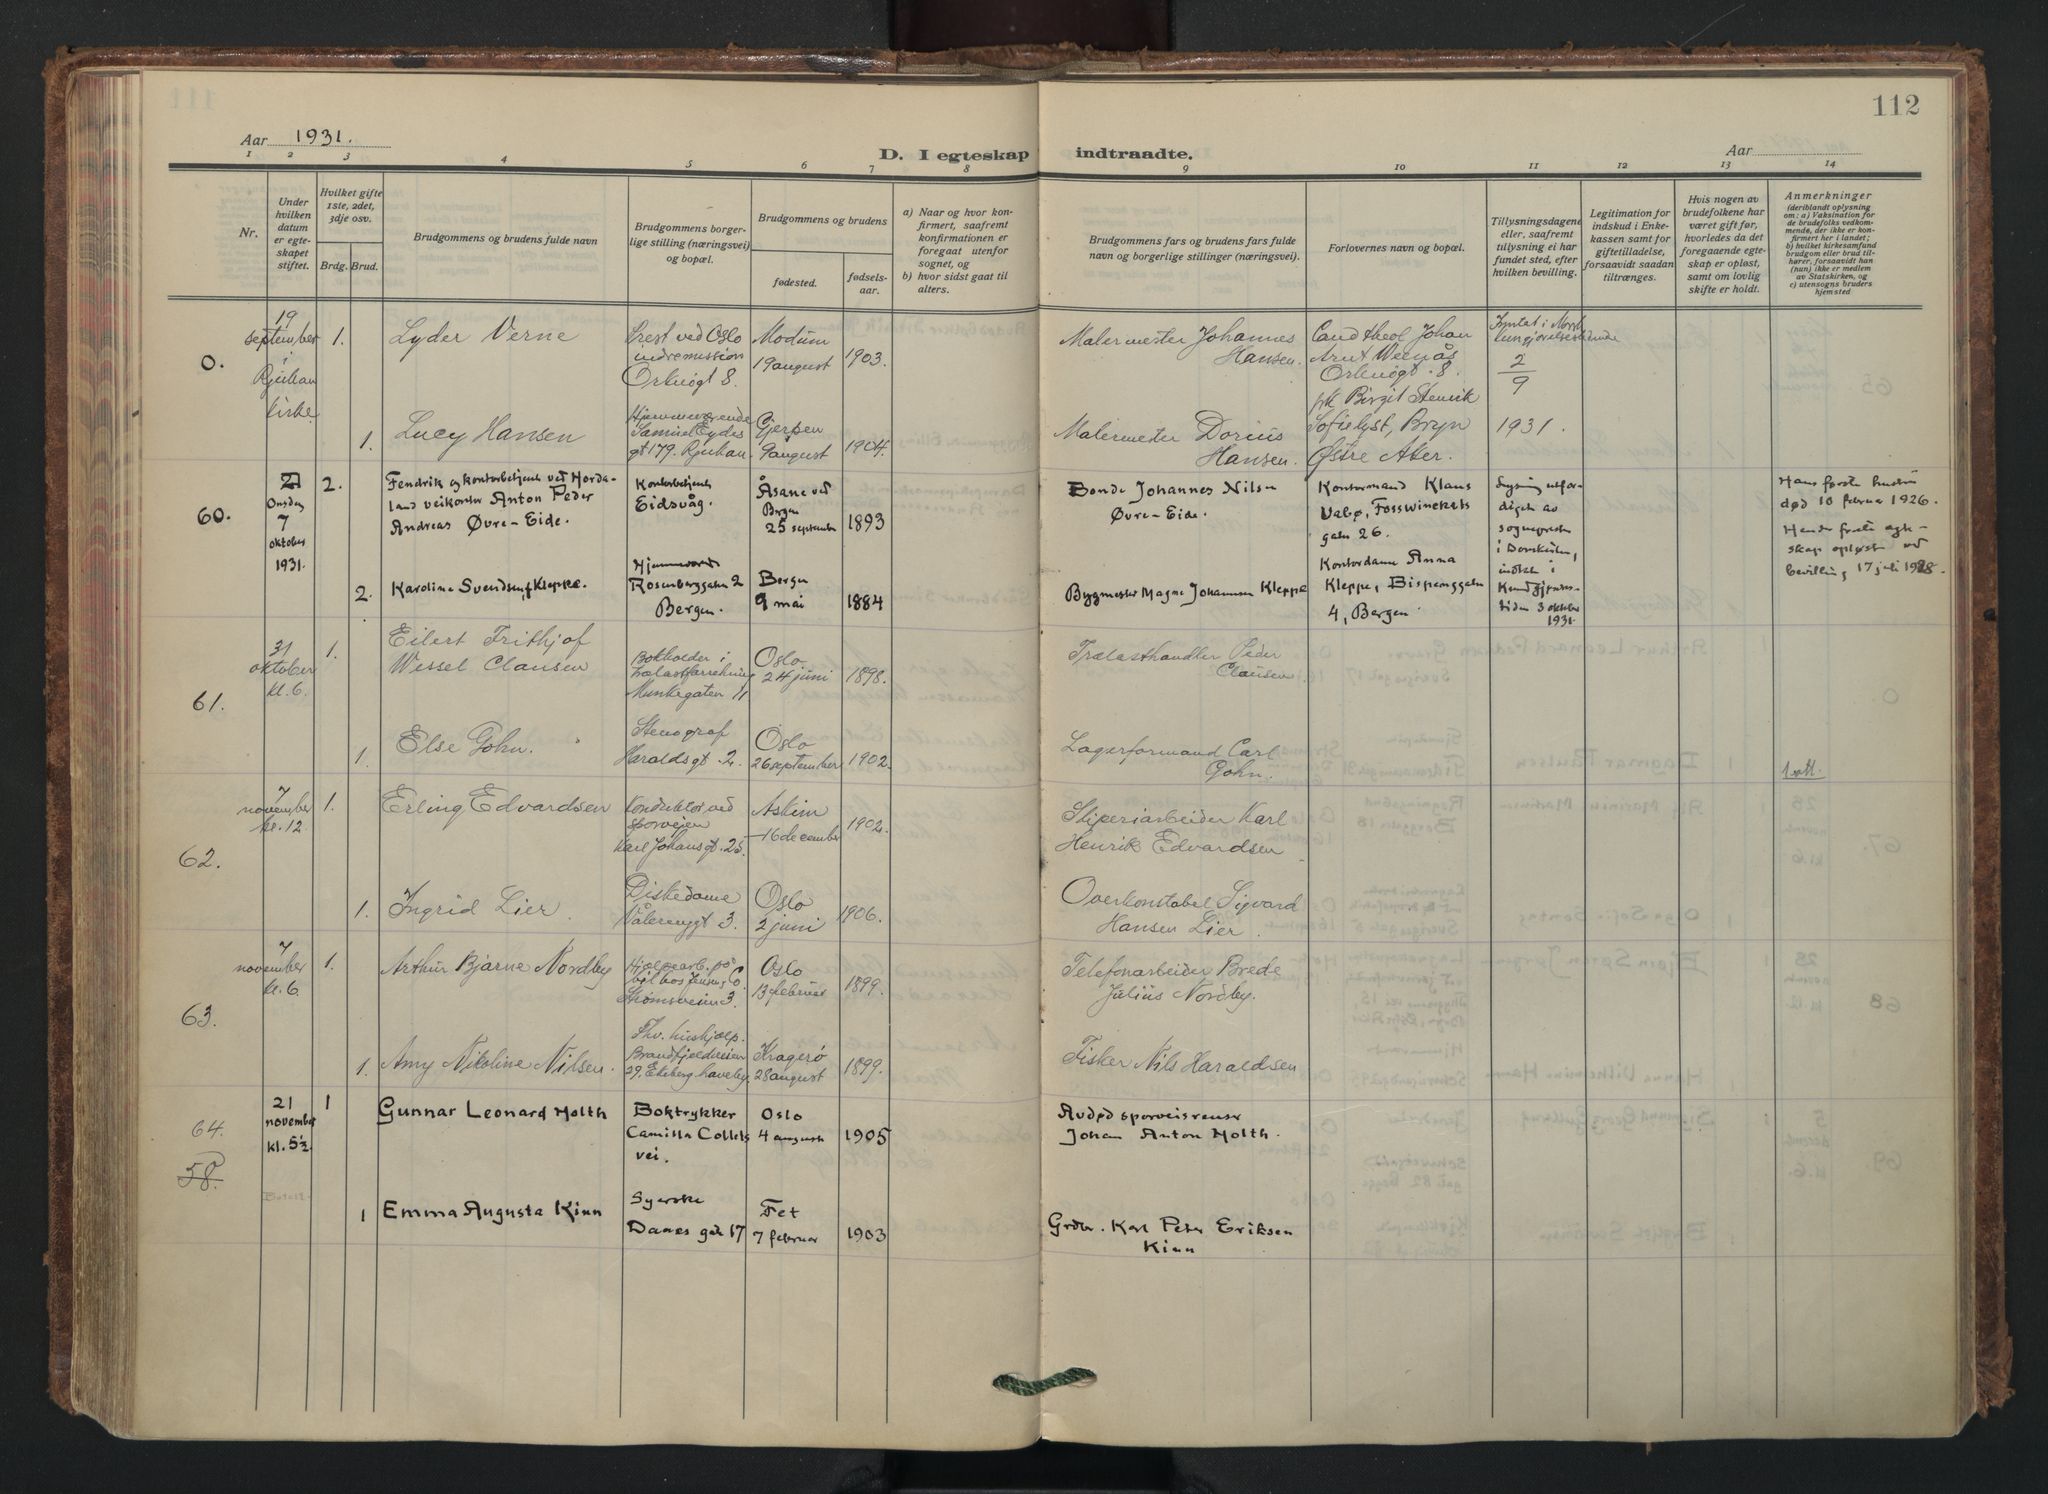 112
Aar 1931.
D. I egteskap indtraadte.
Aar
1 2 3 4 5 6 7 8 9 10 11 12 13 14
Nr.
Under hvilken datum er egteskapet stiftet.
Hvilket gifte 1ste, 2det, 3dje osv.
Brdg. Brud.
Brudgommens og brudens fulde navn
Brudgommens borgerlige stilling (næringsvei) og bopæl.
Brudgommens og brudens
fødested.
fødselsaar.
a) Naar og hvor konfirmert, saafremt konfirmationen er foregaat utenfor sognet, og
b) hvor sidst gaat til alters.
Brudgommens fars og brudens fars fulde navn og borgerlige stillinger (næringsvei).
Forlovernes navn og bopæl.
Tillysningsdagene eller, saafremt tillysning ei har fundet sted, efter hvilken bevilling.
Legitimation for indskud i Enkekassen samt for giftetilladelse, forsaavidt saadan tiltrænges.
Hvis nogen av brudefolkene har været gift før, hvorledes da det foregaaende egteskap er opløst, samt om lovlig skifte er holdt.
Anmerkninger
(deriblandt oplysning om: a) Vaksination for de brudefolks vedkommende, der ikke er konfirmert her i landet; b) hvilket kirkesamfund brudgom eller brud tilhører, forsaavidt han (hun) ikke er medlem av Statskirken, og c) utensogns bruders hjemsted
0.
19 september i Rjukan kirke
1.
Lyder Verne
Prest ved Oslo indremission Orknøgt 8.
Modum 19 august
1903.
Malermester Johannes Hansen.
Cand theol Johan Arnt Wernås Orknøgt. 8.
2/9
1931.
1.
Lucy Hansen
Hjemmeværende Samuel Eydes gt 179. Rjukan.
Gjerpen 9 august
1904.
Malermester Dorius Hansen.
Birgit Stenvik Sofielyst, Bryn Østre Aker.
60.
Onsdag 7 oktober 1931.
2.
Fendrik og kontorbetjent ved Hordaland veikontor Anton Peder Andreas Øvre-Eide.
Kontorbetjent Eidsvåg.
Åsane ved Bergen 25 september
1893
Bonde Johannes Nilsen Øvre-Eide.
Kontormand Klaus Valø, Fosswinckels gaten 26.
Lysning utferdiget av sogneprest i Domkirken, indtat i Kundgjørelsestiden 3 oktober 1931.
Hans første hustru død 10 februar 1926.
2.
Karoline Svendsen, f Kleppe.
Hjemmevær Rosenberggaten 2 Bergen.
Bergen 9 mai
1884
Bygmester Magne Johannesen Kleppe
Kontordame Anna Kleppe, Bispenggaten 4, Bergen.
Hendes første egteskap opløst ved bevilling 17 juli 1928.
61.
31 oktober kl. 6.
1.
Eilert Frithjof Wessel Clausen
Bokholder i trælastforretning Munkegaten 11
Oslo 24 juni
1898.
Trælasthandler Peder Clausen
1.
Else Gohn.
Stenograf Haraldsgt. 2.
Oslo 26 september
1902.
Lagerformand Carl Gohn.
1 att.
62.
7 november kl. 12.
1.
Erling Edvardsen
Konduktør ved sporveien Karl Johansgt. 25.
Askim 16 december
1902.
Sliperiarbeider Karl Henrik Edvardsen
1.
Ingrid Lier.
Diskedame Vålerenggt 3.
Oslo 2 juni
1906.
Overkonstabel Sigvard Hansen Lier.
63.
7 november kl. 6.
1.
Arthur Bjarne Nordby
Hjelpearb. på bil hos Jensen & Co. Strømsveien 3.
Oslo 13 februar
1899.
Telefonarbeider Brede Julius Nordby.
1.
Amy Nikoline Nilsen.
Fhv. hushjælp. Brandfjeldveien 29. Ekeberg haveby.
Kragerø 28 august
1899.
Fisker Nils Haraldsen
64.
58.
21 november kl. 5½.
Betalt.
1
Gunnar Leonard Holth
Boktrykker Camilla Collets vei.
Oslo 4 august
1905
Avdød sporveisrenser Johan Anton Holth.
1
Emma Augusta Kinn
Syerske Daaes gate 17
Fet 7 februar
1903
Grdbr. Karl Peter Eriksen Kinn